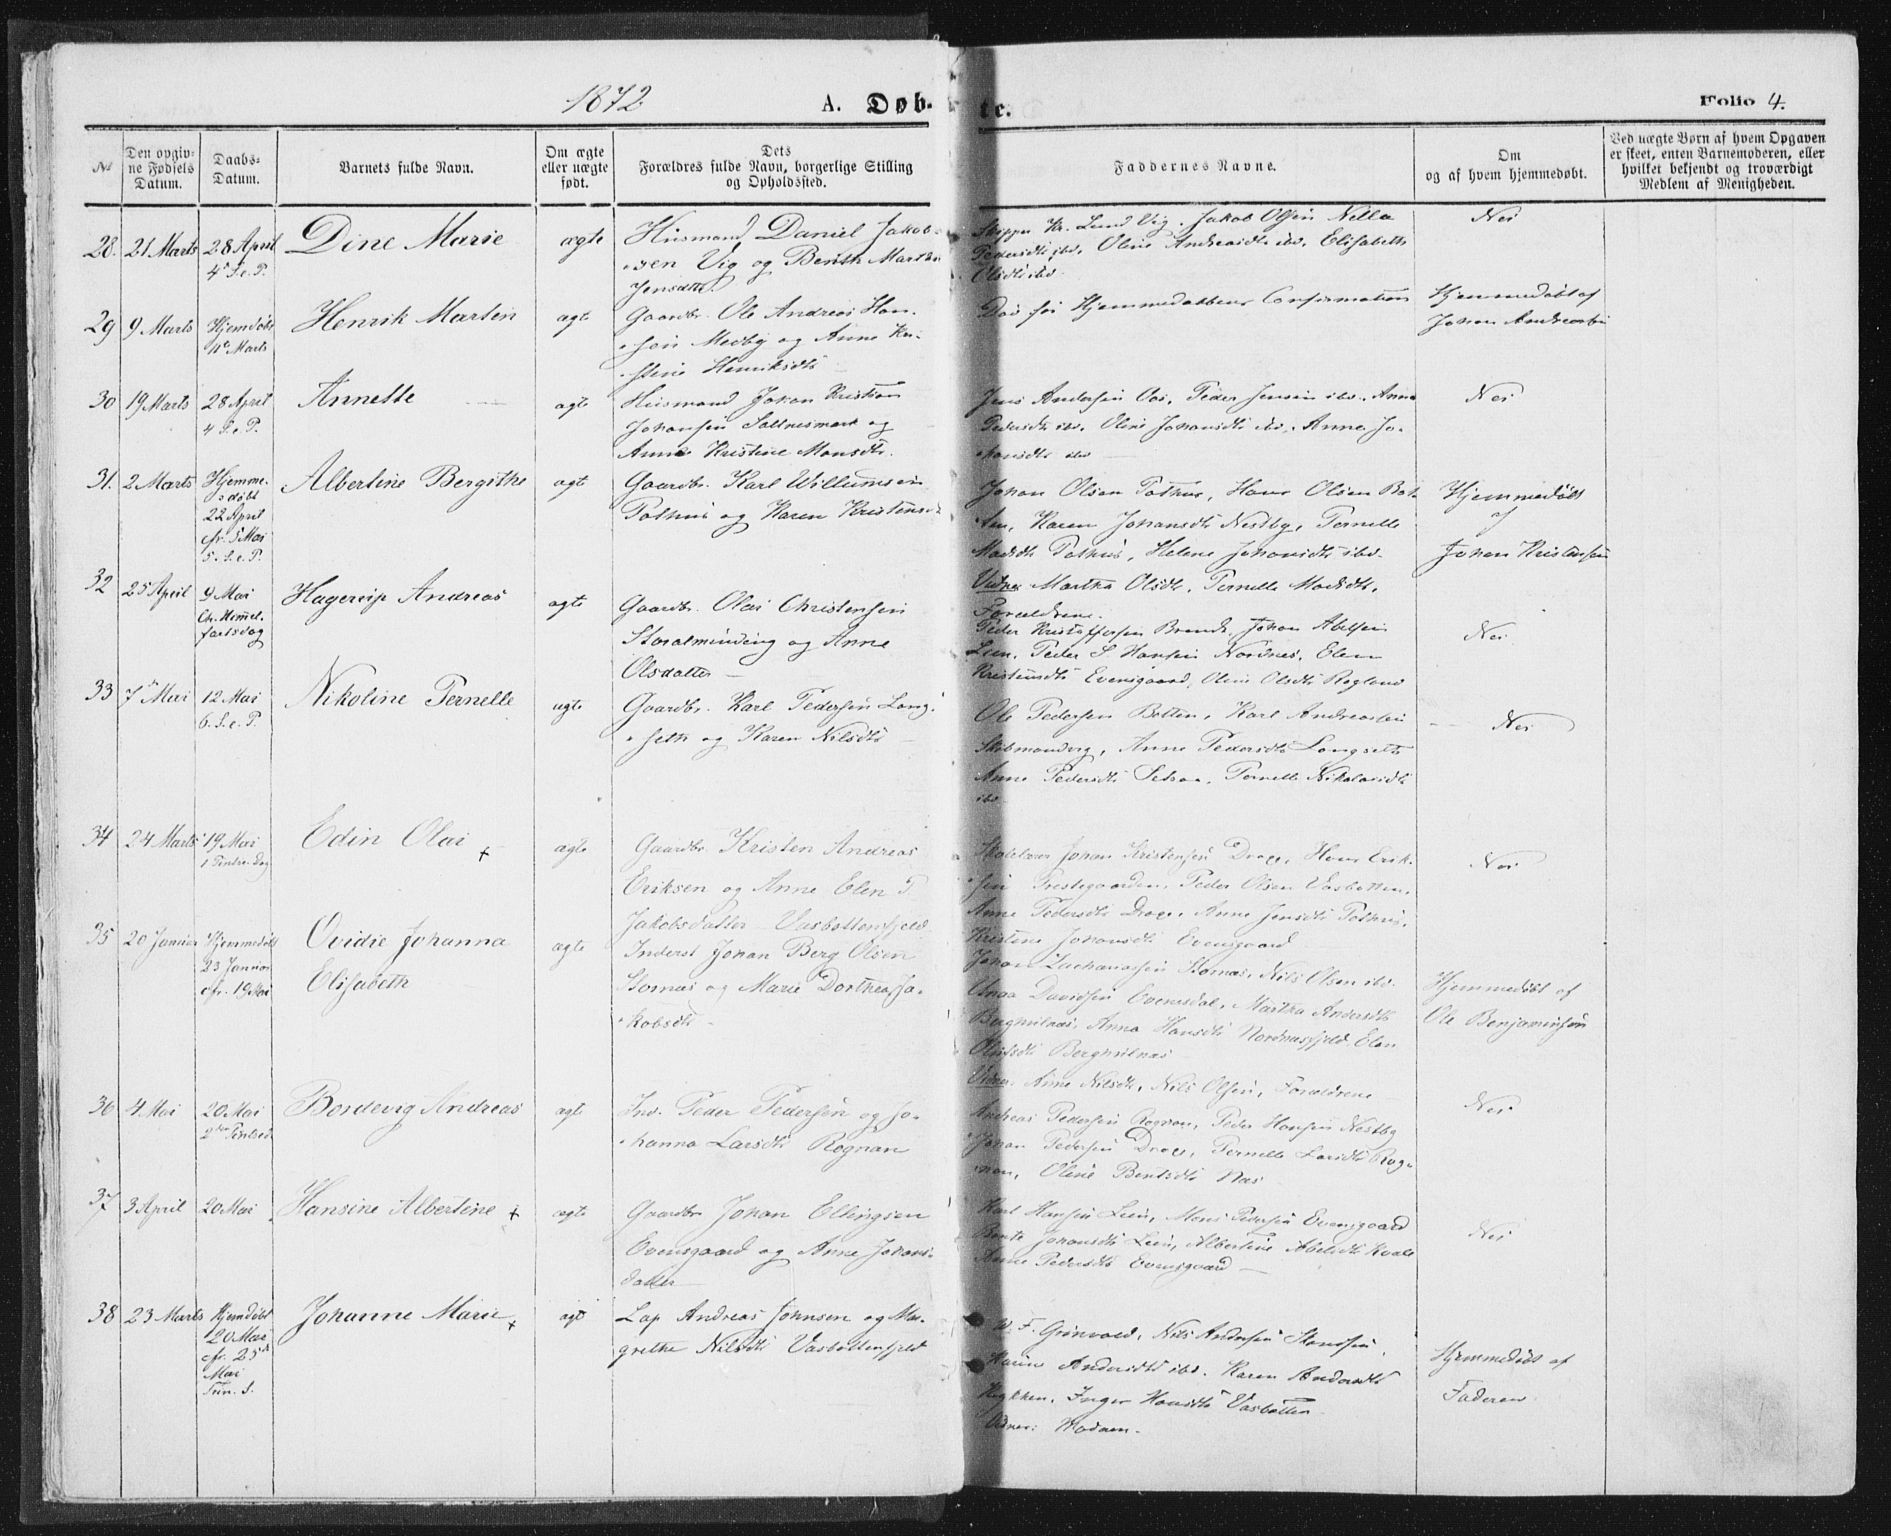 1872
A. Døb-
te.
Folio 4.
№
Den opgiv-
ne Fødsels
Datum.
Daabs-
Datum.
Barnets fulde Navn.
Om ægte
eller uægte
født.
Dets
Forældres fulde Navn, borgerlige Stilling
og Opholdssted.
Faddernes Navne.
Om
og af hvem hjemmedøbt.
Ved uægte Børn af hvem Opgaven
er skeet, enten Barnemoderen, eller
hvilket bekjendt og troværdigt
Medlem af Menigheden.
28. 21 Marts
28 April
4 S. e. P.
Dine Marie
ægte
Husmand Daniel Jakob-
sen Vig og Benth Martha
Jensdtt.
Skipper Kr. Lund Vig, Jakob Olsen
Pedersdtr ibd, Oline Andreasdtr ibd, Elisabeth
Olsdtr ibd
Nei
29 9 Marts
Hjemdøbt
Marts
Henrik Martin
ægte
Gaardbr. Ole Andreas Han-
sen Medby og Anne Kri-
stine Henriksdtr
Død før Hjemmedaabens Confirmation
Hjemmedøbt af
Johan Andreassen
30 19 Marts
28 April
4 S. e. P.
Annette
ægte
Husmand Johan Kristian
Johansen Saltnesmark og
Anne Kristine Monsdtr.
Jens Andersen Oos, Peder Jensen ibd, Anne
Pedersdtr ibd, Oline Johansdtr ibd, Anne Jo-
hansdtr ibd
Nei
31. 2 Marts
Hjemme-
døbt
22 April
cfr. 5 Mai
5. S. e. P.
Albertine Bergithe
ægte
Gaardbr. Karl Willumsen
Pothus og Karen Kristens
Johan Olsen Pothus, Hans Olsen Bot-
ten, Karen Johansdtr Nestby, Pernelle
Madsdtr Pothus, Helene Johansdtr ibd.
Vidner Martha Olsdtr, Pernelle Madsdtr,
Forældrene.
Hjemmedøbt
af
Johan Kristensen
32 25 April
9 Mai
Chr. Himmel-
fartsdag
Hagerup Andreas
ægte
Gaardbr. Olai Christensen
Storalminding og Anne
Olsdatter
Peder Kristoffersen Brandt, Johan Abelsen
Leen, Peder S. Hansen Nordnes, Elen
Kristensdtr Evensgaard, Oline Olsdtr Rogland
Nei
33 7 Mai
12 Mai
6. S. e. P.
Nikoline Pernelle
ægte
Gaardbr. Karl Pedersen Lang-
seth og Karen Nilsdtr
Ole Pedersen Botten, Karl Andreassen
Skibmandvig, Anne Pedersdtr Langseth
Anne Pedersdtr Setsaa, Pernelle Nikolaisdtr
ibd
Nei
34 24 Marts
19 Mai
1 Pintse-Dag
Edin Olai +
ægte
Gaardbr. Kristen Andreas
Eriksen og Anne Elen P
Jakobsdatter Vasbottenfjeld
Skolelærer Johan Kristensen Drage, Hans Erik-
sen Prestegaarden, Peder Olsen Vasbotten,
Anne Pedersdtr Drage, Anne Jensdtr Pothus,
Kristene Johansdtr Evensgaard
Nei
35 20 Januar
Hjemmedøbt
23 Januar
cfr. 19 Mai
Ovidie Johanna
Elisabeth
ægte
Inderst Johan Berg Olsen
Stornæs og Marie Dorthea Ja-
kobsdtr
Johan Zachariasen Stornæs, Nils Olsen ibd.
Davidsen Evenesdal, Martha Andersdtr
Berghulnæs, Anna Hansdtr Nordnæsfjeld, Elen
Olufsdtr Berghulnæs
Vidner Anne Nilsdtr, Nils Olsen, Forældrene
Hjemmedøbt af
Ole Benjaminsen
36 4. Mai
20 Mai
2den Pintsed
Bordevig Andreas
ægte
Ind. Peder Pedersen og Jo-
hanna Larsdtr Rognan
Andreas Pedersen Rognan, Peder Hansen Nestby
Johan Pedersen Drage, Pernelle Larsdtr Rog-
nan, Oline Bentsdtr Næs
Nei
37 3 April
20 Mai
Hansine Albertine +
ægte
Gaardbr Johan Ellingsen
Evensgaard og Anne Johans-
datter
Karl Hansen Leen, Mons Pedersen Evensgaard
Bente Johansdtr Leen, Albertine Abelsdtr Kvale
Anne Pedersdtr Evensgaard
Nei
38 23 Marts
Hjemdøbt
20 Mai
cfr. 25de
Mai
Trin. S.
Johanne Marie +
ægte
Lap Andreas Johnsen og Mar-
grethe Nilsdtr Vasbottenfjeld
W. F. Grönvold, Nils Andersen
Andersdtr ibd. Karen Andersdtr
Hykken, Inger Hansdtr Vasbotten
Vidner: Madam.
Hjemmedøbt af
Faderen